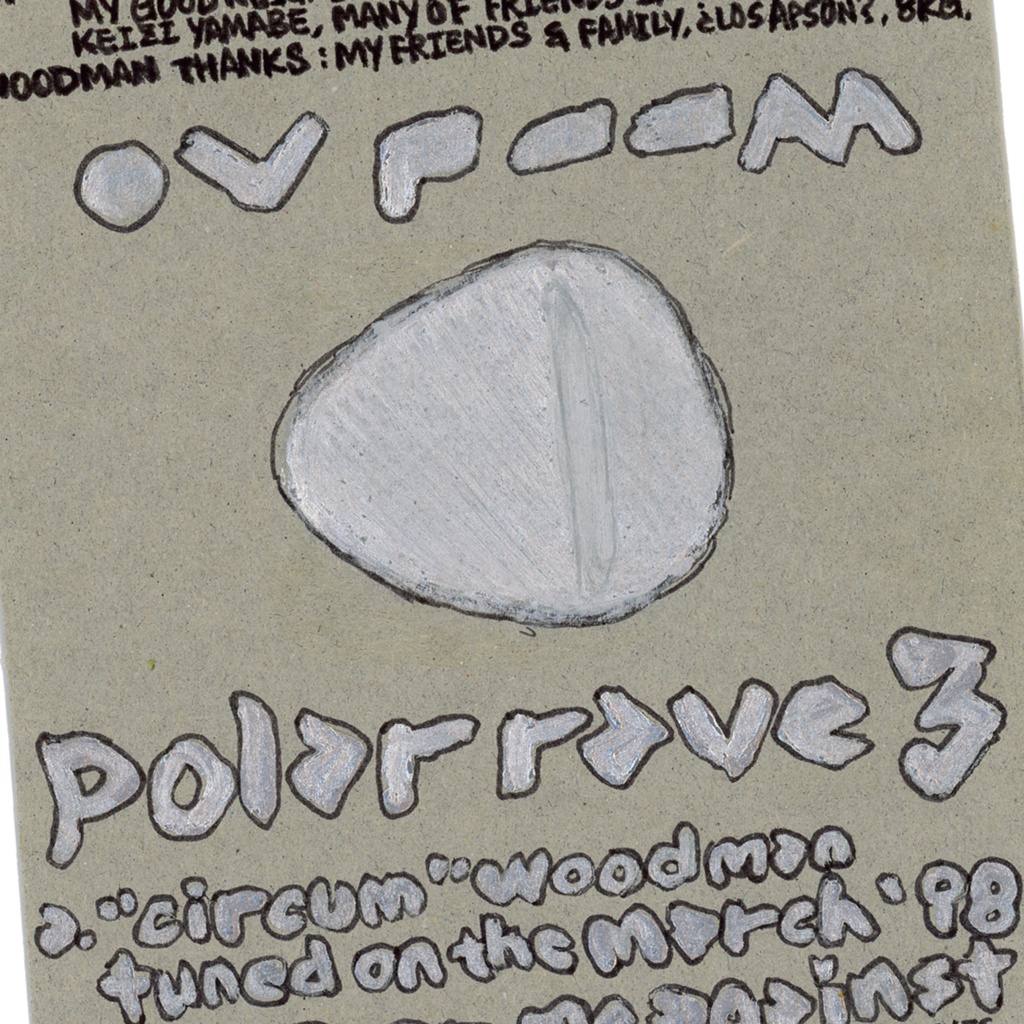 MY GOOD
KEIΣI YAMABE, MANY OF FRIENDS &
WOODMAN THANKS : MY FRIENDS & FAMILY, ¿LOS APSON?, 8KG.
polar rave 3
a. "circum" woodman
tuned on the March '98
against